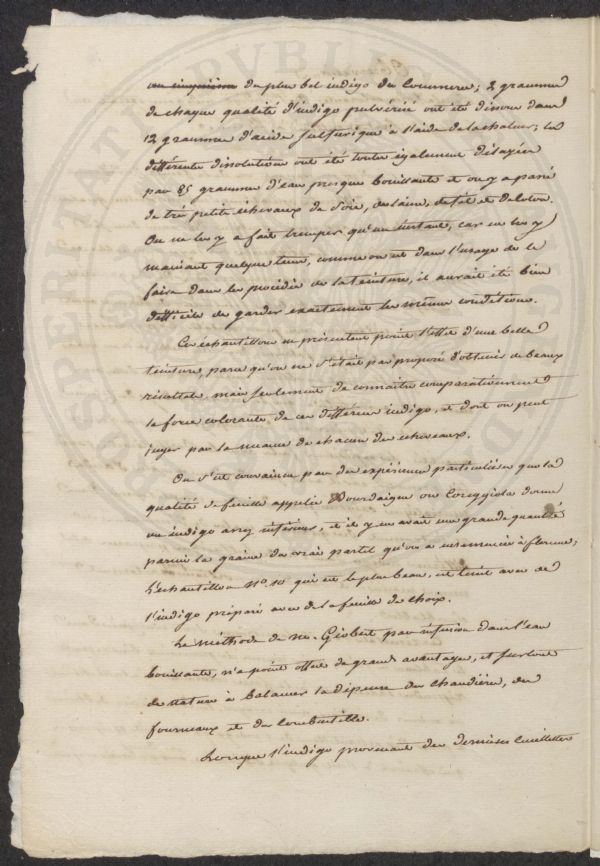 du plus bel indigo du Commerce; 2 grammes
de chaque qualité d'indigo pulvérisé ont été dissous dans
12 grammes d'acide sulfurique à l'aide de la chaleur; les
différentes dissolutions ont été toutes également délayées
par 85 grammes d'eau presque bouillante et on y a passé
de très petits écheveaux de soie, de laine, de fil et de coton.
On ne les y a fait tremper qu'un instant, car en les y
maisant quelque tems, comme on est dans l'usage de le
faire dans les procédés de la teinture, il aurait été bien
difficile de garder exactement les mêmes conditions.
Ces échantillons ne présentent point l'effet d'une belle
teinture, parce qu'on ne s'était pas proposé d'obtenir de beaux
résultats, mais seulement de connaitre comparativement
la force colorante de ces différens indigo, et dont on peut
juger par la nuance de chacun des écheveaux.
On s'est convaincu par des expériences particulières que la
qualité de feuille appelée Bourdaigne ou Coreggiola donne
un indigo assez inférieur, et il y en avait une grande quantité
parmi la graine du vrai pastel qu'on a ensemencé à florence;
L'échantillon No. 10 qui est le plus beau, est teint avec de
l'indigo préparé avec de la feuille de choix.
La méthode de Mr. Giobert par infusion dans l'eau
bouillante, n'a point offert de grands avantages, et surtout
de nature à balancer la dépense des chaudières, des
fourneaux et du combustible.
Lorsque l'indigo provenant des dernières cueillettes
PROSPERITATI PVBLIC